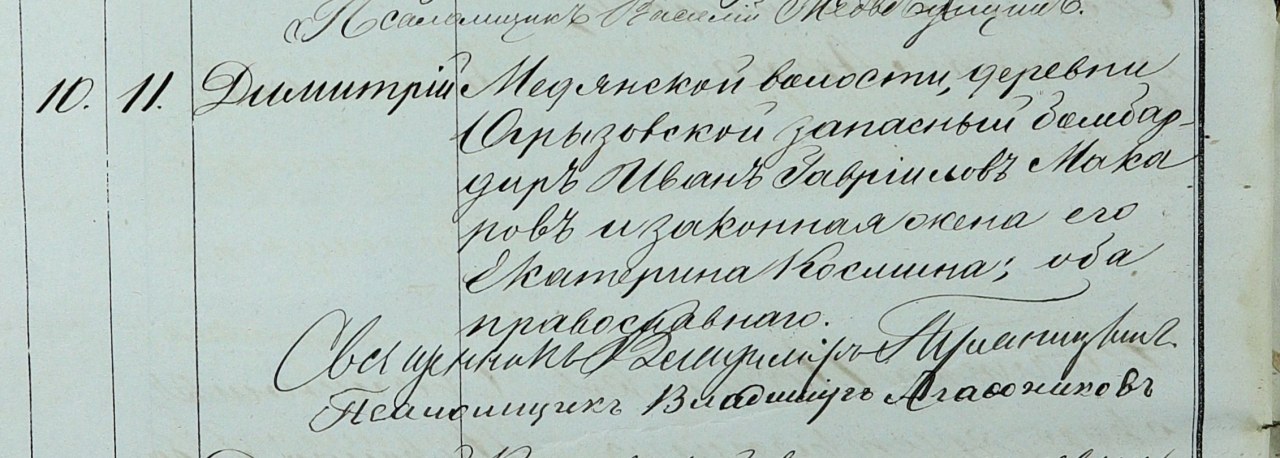 Псаломщикъ Василій
10. 11. Димитрій Медянской волости, деревни
Огрызовской запасный бомбар-
диръ Иванъ Гавріиловъ Мака
ровъ и законная жена его
Екатерина Космина; оба
православнаго.
Священникъ Владиміръ
Псаломщикъ Владиміръ Агафониковъ